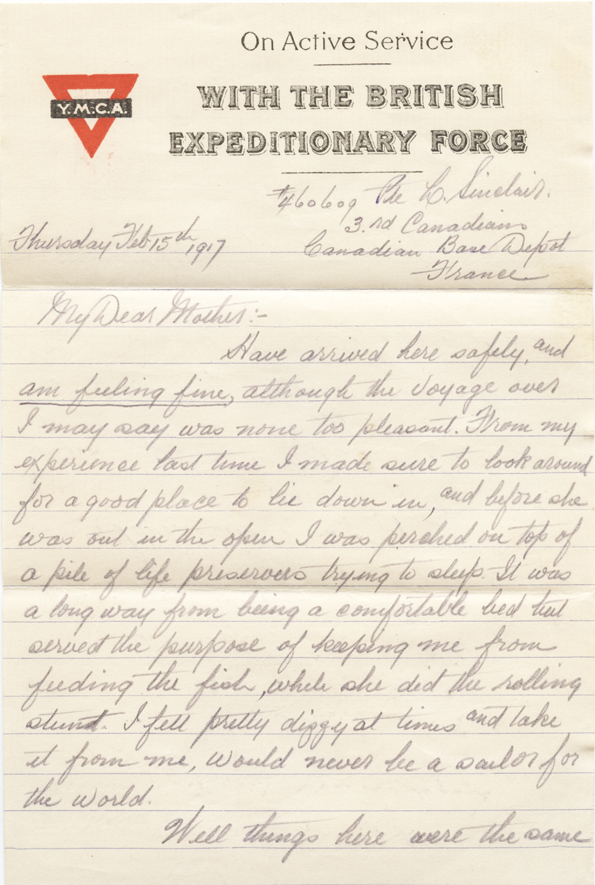 On Active Service
WITH THE BRITISH
EXPEDITIONARY FORCE
Y.M.C.A.
#460609 Pte C. Sinclair.
3.rd Canadians
Canadian Base Depot
France
Thursday Feb 15th, 1917
My Dear Mother:-
Have arrived here safely, and
am feeling fine, although the voyage over
I may say was none too pleasant. From my
experience last time I made sure to look around
for a good place to lie down in, and before she
was out in the open I was perched on top of
a pile of life preservers trying to sleep. It was
a long way from being a comfortable bed but
served the purpose of keeping me from
feeding the fish, while she did the rolling
stunt. I felt pretty dizzy at times and take
it from me, would never be a sailor for
the world.
Well things here were the same